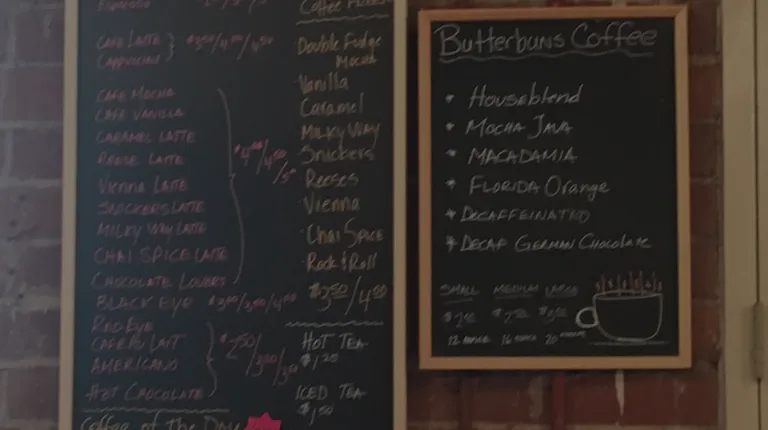 Espresso
CAFE LATTE
CAPPUCCINO
CAFE MOCHA
CAFE VANILLA
CARAMEL LATTE
REESE LATTE
Vienna LATTE
SNICKERS LATTE
MILKY WAY LATTE
CHAI SPICE LATTE
CHOCOLATE LOVERS
BLACK EYE $3.00/3.50/4.00
RED EYE
CAFE AU LAIT
AMERICANO
HOT CHOCOLATE
Coffee of The Day
Coffee
Double Fudge
Mocha
Vanilla
Caramel
MILKY WAY
Snickers
Reeses
Vienna
Chai Spice
Rock & Roll
$3.50/4.00
HOT TEA
$1.25
ICED TEA
$1.50
Butterbuns Coffee
* Houseblend
* MOCHA JAVA
* MACADAMIA
* FLORIDA Orange
* DECAFFEINATED
* DECAF GERMAN Chocolate
SMALL MEDIUM LARGE
12 16 20